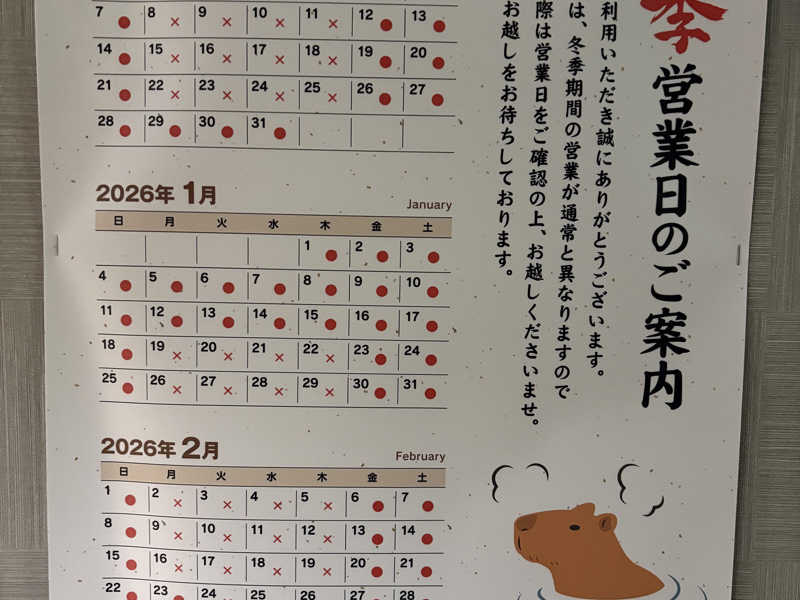 季営業日のご案内
利用いただき誠にありがとうございます。
は、冬季期間の営業が通常と異なりますので
際は営業日をご確認の上、お越しくださいませ。
お越しをお待ちしております。
7 ● 8 × 9 × 10 × 11 × 12 ● 13 ●
14 ● 15 × 16 × 17 × 18 × 19 ● 20 ●
21 ● 22 × 23 × 24 × 25 × 26 ● 27 ●
28 ● 29 ● 30 ● 31 ●
2026年 1月 January
日 月 火 水 木 金 土
1 ● 2 ● 3 ●
4 ● 5 ● 6 ● 7 ● 8 ● 9 ● 10 ●
11 ● 12 ● 13 ● 14 ● 15 ● 16 ● 17 ●
18 ● 19 × 20 × 21 × 22 × 23 ● 24 ●
25 ● 26 × 27 × 28 × 29 × 30 ● 31 ●
2026年 2月 February
日 月 火 水 木 金 土
1 ● 2 × 3 × 4 × 5 × 6 ● 7 ●
8 ● 9 × 10 × 11 × 12 × 13 ● 14 ●
15 ● 16 × 17 × 18 × 19 × 20 ● 21 ●
22 ● 23 ● 24 25 26 27 28